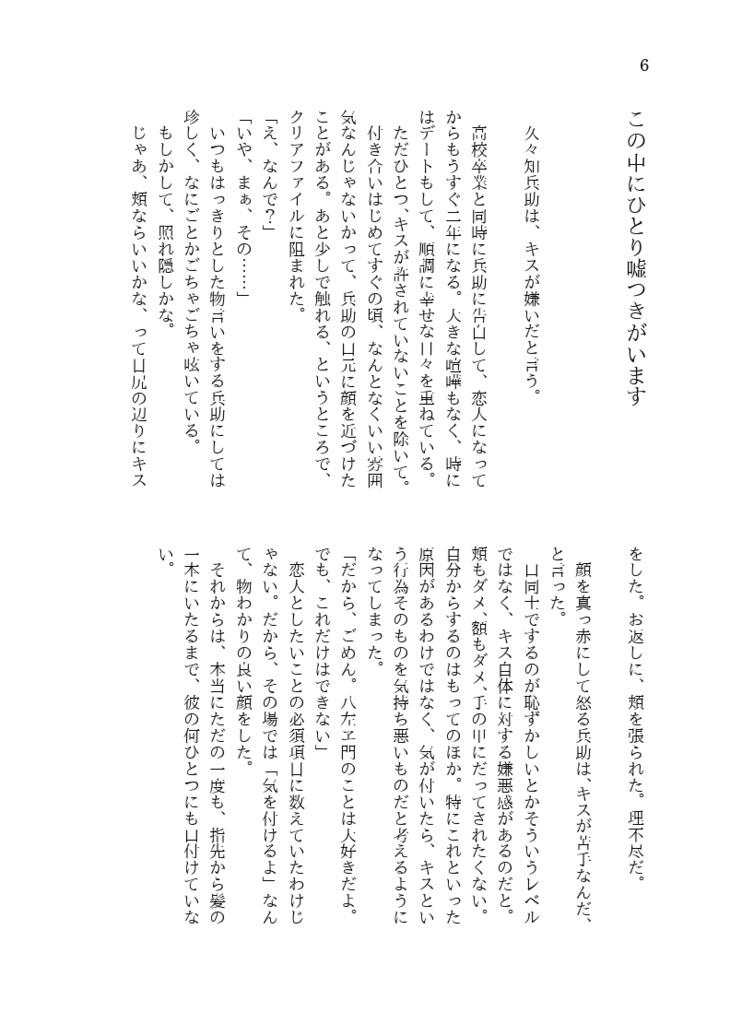 6
この中にひとり嘘つきがいます
久々知兵助は、キスが嫌いだと言う。
高校卒業と同時に兵助に告白して、恋人になって
からもうすぐ二年になる。大きな喧嘩もなく、時に
はデートもして、順調に幸せな日々を重ねている。
ただひとつ、キスが許されていないことを除いて。
付き合いはじめてすぐの頃、なんとなくいい雰囲
気なんじゃないかって、兵助の口元に顔を近づけた
ことがある。あと少しで触れる、というところで、
クリアファイルに阻まれた。
「え、なんで？」
「いや、まぁ、その……」
いつもはっきりとした物言いをする兵助にしては
珍しく、なにごとかごちゃごちゃ呟いている。
もしかして、照れ隠しかな。
じゃあ、頬ならいいかな、って口尻の辺りにキス
をした。お返しに、頬を張られた。理不尽だ。
顔を真っ赤にして怒る兵助は、キスが苦手なんだ、
と言った。
口同士でするのが恥ずかしいとかそういうレベル
ではなく、キス自体に対する嫌悪感があるのだと。
頬もダメ、額もダメ、手の甲にだってされたくない。
自分からするのはもってのほか。特にこれといった
原因があるわけではなく、気が付いたら、キスとい
う行為そのものを気持ち悪いものだと考えるように
なってしまった。
「だから、ごめん。八左ヱ門のことは大好きだよ。
でも、これだけはできない」
恋人としたいことの必須項目に数えていたわけじ
ゃない。だから、その場では「気を付けるよ」なん
て、物わかりの良い顔をした。
それからは、本当にただの一度も、指先から髪の
一本にいたるまで、彼の何ひとつにも口付けていな
い。